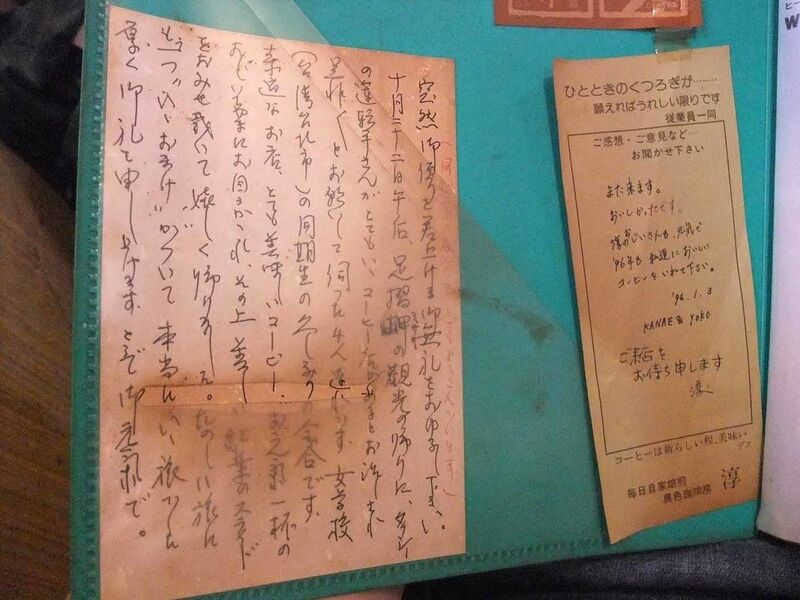 突然御便りを差上げる御無礼をおゆるし下さい。
十月二十二日午后、足摺岬の観光の帰りに、タクシー
の運転手さんがとてもいゝコーヒー
是非くとお願いして伺った4人連れです 女学校
(台湾台北市)の同期生の久しぶりの会合です。
素適なお店、とても美味しいコーヒー、お元気一杯の
おじ様にお目にかゝれ、その上美しい紅葉のスライド
をおみせ戴いて嬉しく帰りました。たのしい旅に
もう一つ"おまけ"がついて本当にいゝ旅でした
厚く御礼を申し上げます どうぞ御元気で。
ひとときのくつろぎが………
願えればうれしい限りです
従業員一同
ご感想・ご意見など…
お聞かせ下さい
また来ます。
おいしかったです。
淳のおじいさんも、元気で
'96年も 知道においしい
コーヒーをいれて下さい。
'96.1.3
KANAE & YOKO
ご来店を
お待ち申します
淳
コーヒーは新らしい程、美味い
デス
毎日自家焙煎
異色珈琲房
淳